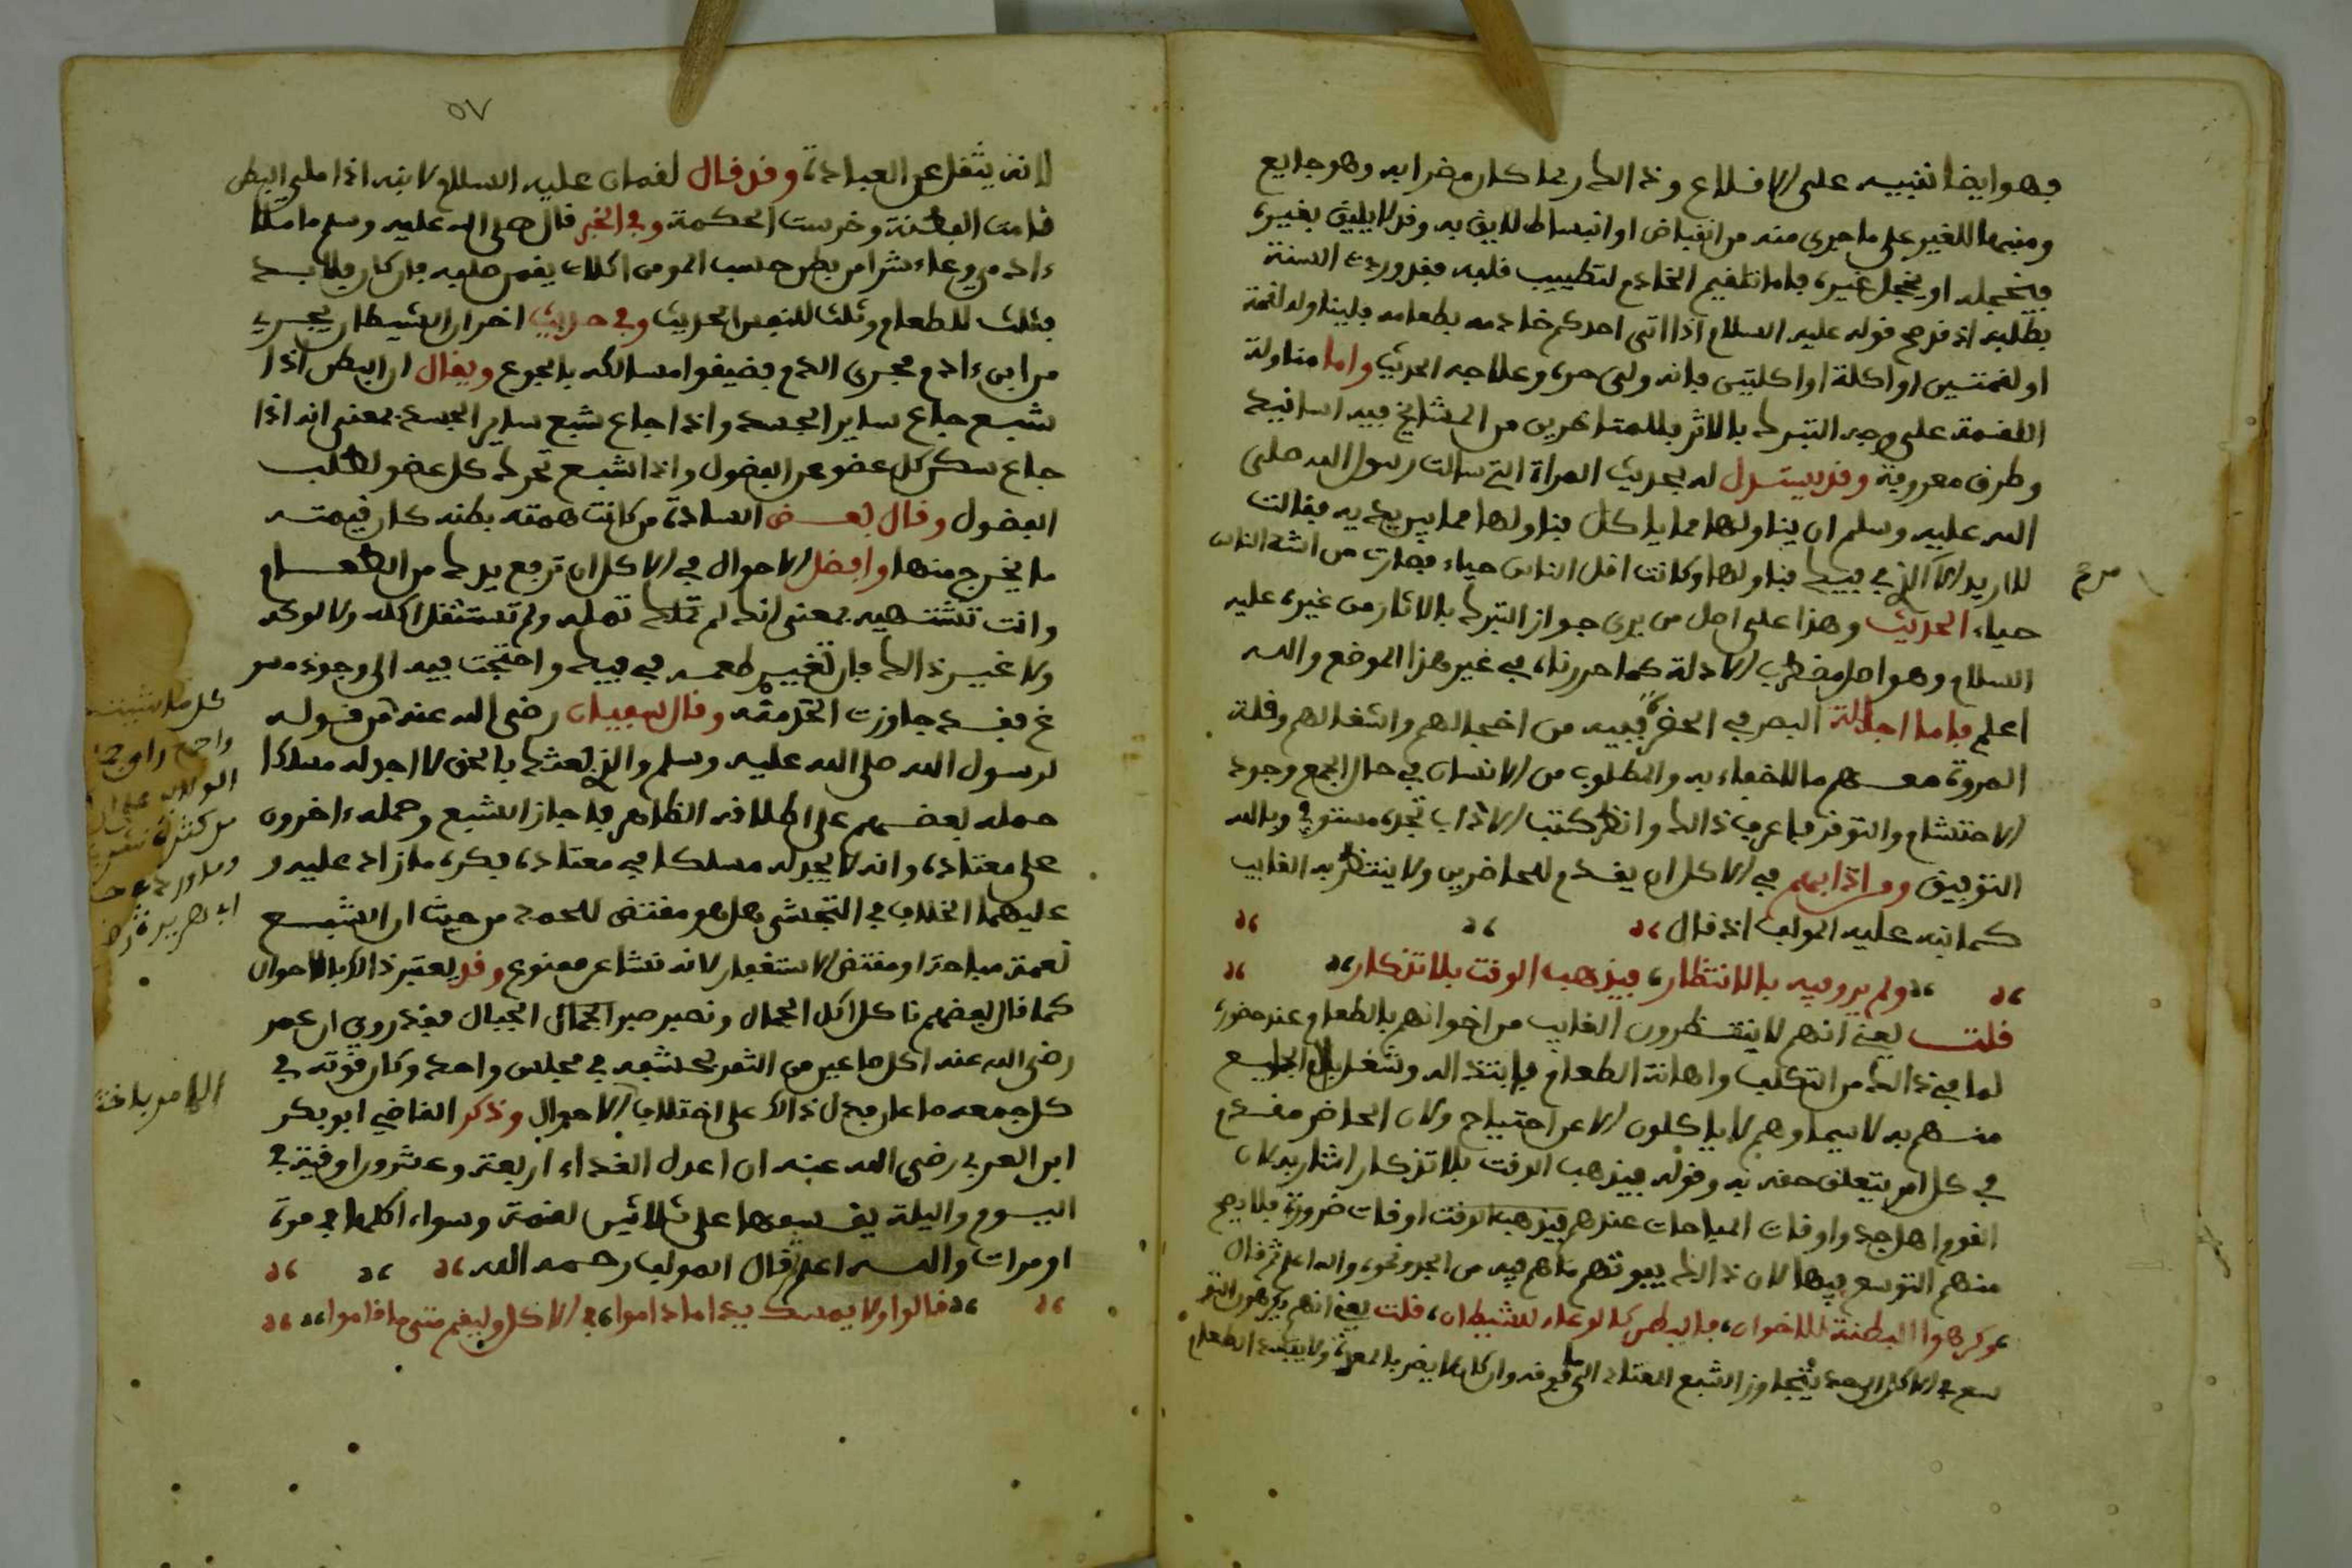 فهو ايضا تنبيه على الاقلاع وذالك ربما كان مضرا به وهو جايع
ومنبها للغير على ما جرى منه من انقباض او انبساط لايق به وقد لا يليق بغيره
فيخجله او يخجل غيره فاما تلقيم الخادم لتطييب قلبه فقد وردت السنة
بطلبه اذ قد صح قوله عليه السلام اذا اتى احدكم خادمه بطعامه فليناوله لقمة
او لقمتين او اكلة او اكلتين فانه ولي حره وعلاجه الحديث واما مناولة
اللقمة على وجه التبرك بالاثر فللمتاخرين من المشايخ فيه اسانيد
وطرق معروفة وقد يستدل له بحديث المراة التي سالت رسول الله صلى
الله عليه وسلم ان يناولها مما ياكل فناولها مما بين يديه فقالت
لا اريد الا الذي في فيك فناولها وكانت اقل الناس حياء فصارت من اشد الناس
حياء الحديث وهذا على اصل من يرى جواز التبرك بالاثار من غيره عليه
السلام وهو اصل مضطرب الادلة كما حررناه في غير هذا الموضع والله
اعلم فاما اجالة البصر في الحضرة ففيه من اخجالهم واشغالهم وقلة
المروة معهم ما لا خفاء به والمطلوب من الانسان في حال الجمع وجود
الاحتشام والتوقر فاعرف ذالك وانظر كتب الاداب تجده مستوفى وبالله
التوفيق ومن ادابهم في الاكل ان يقدم للحاضرين ولا ينتظر به الغايب
كما نبه عليه المولف اذ قال
ولم يروا فيه بالانتظار، فيذهب الوقت بلا تذكار
قلت يعني انهم لا ينتظرون الغايب من اخوانهم بالطعام عند حضوره
لما في ذالك من التكلف واهانة الطعام بابتذاله وشغل بال الجايع
منهم به لا سيما وهم لا ياكلون الا عن احتياج ولان الحاضر مقدم
في كل امر يتعلق حقه به وقوله فيذهب الوقت بلا تذكار اشار به لان
القوم اهل جد واوقات المباحات عندهم اوقات ضرورة فلا يصح
منهم التوسع فيها لان ذالك يفوتهم ما هم فيه من الجد ونحوه والله اعلم ثم قال
وكرهوا البطنة للاخوان، فالبطن كالوعاء للشيطان، قلت يعني انهم يكرهون التو
سع في الاكل الى حد يتجاوز الشبع المعتاد الى ما فوقه وان كان لا يضر بالمعدة ولا يفسد الطعام
صح
٥٧
لانه يثقل عن العبادة، وقد قال لقمان عليه السلام لابنه اذا ملي البطن
نامت الفطنة وخرست الحكمة وفي الخبر قال صلى الله عليه وسلم ما ملا
ءادمي وعاء شرا من بطن حسب المومن اكلات يقمن صلبه فان كان فلا بد
فثلث للطعام وثلث للنفس الحديث وفي حديث اخر ان الشيطان يجري
من ابن ءادم مجرى الدم فضيقوا مسالكه بالجوع ويقال ان البطن اذا
شبع جاع ساير الجسد واذا جاع شبع ساير الجسد بمعنى انه اذا
جاع سكن كل عضو عن الفضول واذا شبع تحرك كل عضو لطلب
الفضول وقال بعض السادة من كانت همته بطنه كان قيمته
ما يخرج منها وافضل الاحوال في الاكل ان ترفع يدك من الطعام
وانت تشتهيه بمعنى انك لم تمله ولم تستثقل اكله ولا لوكه
ولا غير ذالك فان تغير طعمه في فيك واحتجت فيه الى وجود مسو
غ فقد جاوزت الحد منه وقال سفيان رضي الله عنه من قوله
لرسول الله صلى الله عليه وسلم والذي بعثك بالحق لا اجد له مسلكا
حمله بعضهم على اطلاقه الظاهر فاجاز الشبع وحمله ءاخرون
على معتاده وانه لا يجد له مسلكا في معتاده فكره ما زاد عليه و
عليهما الخلاف في التجشي هل هو مقتض للحمد من حيث ان الشبع
نعمة مباحة او مقتض الاستغفار لانه نشا عن ممنوع وقد يعتبر ذالك بالاحوال
كما قال بعضهم ناكل اكل الجمال ونصبر صبر الجبال فقد روي ان عمر
رضي الله عنه اكل صاعين من التمر بحشفه في مجلس واحد وكان قوته في
كل جمعة صاعا فدل ذالك على اختلاف الاحوال وذكر القاضي ابو بكر
ابن العربي رضي الله عنه ان اعدل الغداء اربعة وعشرون اوقية في
اليوم والليلة يقسمها على ثلاثين لقمة وسواء اكلها في مرة
او مرات والله اعلم ثم قال المولف رحمه الله
قالوا ولا يمسك يدا ما داموا، في الاكل وليقم متى ما قاموا